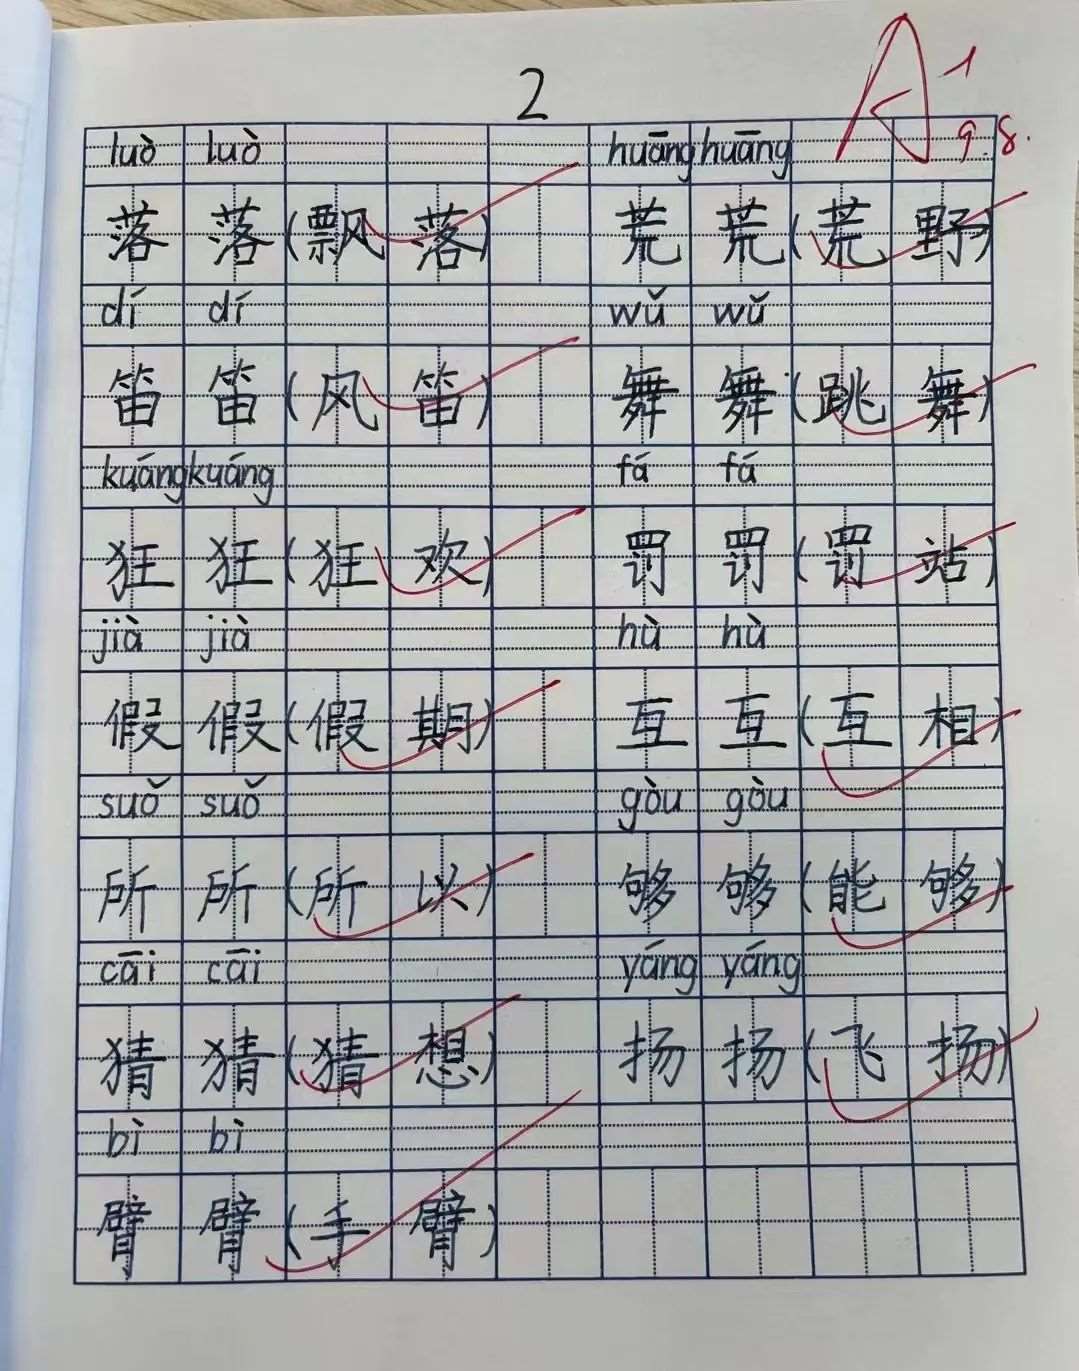 2
A 1
9.8.
luò luò huāng huāng
落 落 (飘 落) 荒 荒 (荒 野)
dí dí wǔ wǔ
笛 笛 (风 笛) 舞 舞 (跳 舞)
kuáng kuáng fá fá
狂 狂 (狂 欢) 罚 罚 (罚 站)
jià jià hù hù
假 假 (假 期) 互 互 (互 相)
suǒ suǒ gòu gòu
所 所 (所 以) 够 够 (能 够)
cāi cāi yáng yáng
猜 猜 (猜 想) 扬 扬 (飞 扬)
bì bì
臂 臂 (手 臂)